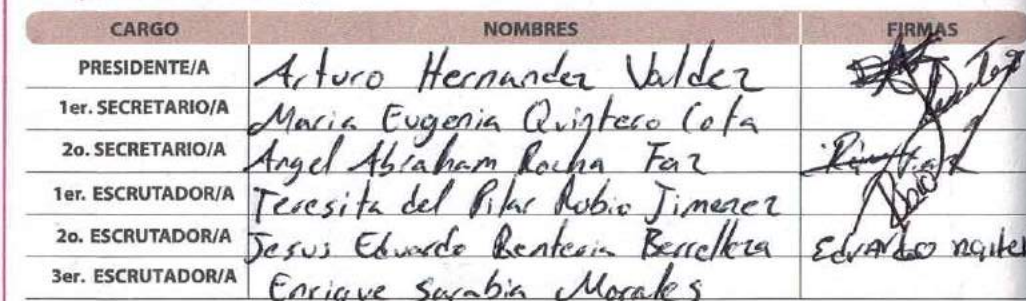 CARGO NOMBRES FIRMAS
PRESIDENTE/A Arturo Hernandez Valdez
1er. SECRETARIO/A Maria Eugenia Quintero Cota
2o. SECRETARIO/A Angel Abraham Rocha Faz
1er. ESCRUTADOR/A Teresita del Pilar Rubio Jimenez Rubio
2o. ESCRUTADOR/A Jesus Eduardo Renteria Berrelleza Eduardo
3er. ESCRUTADOR/A Enrique Sarabia Morales